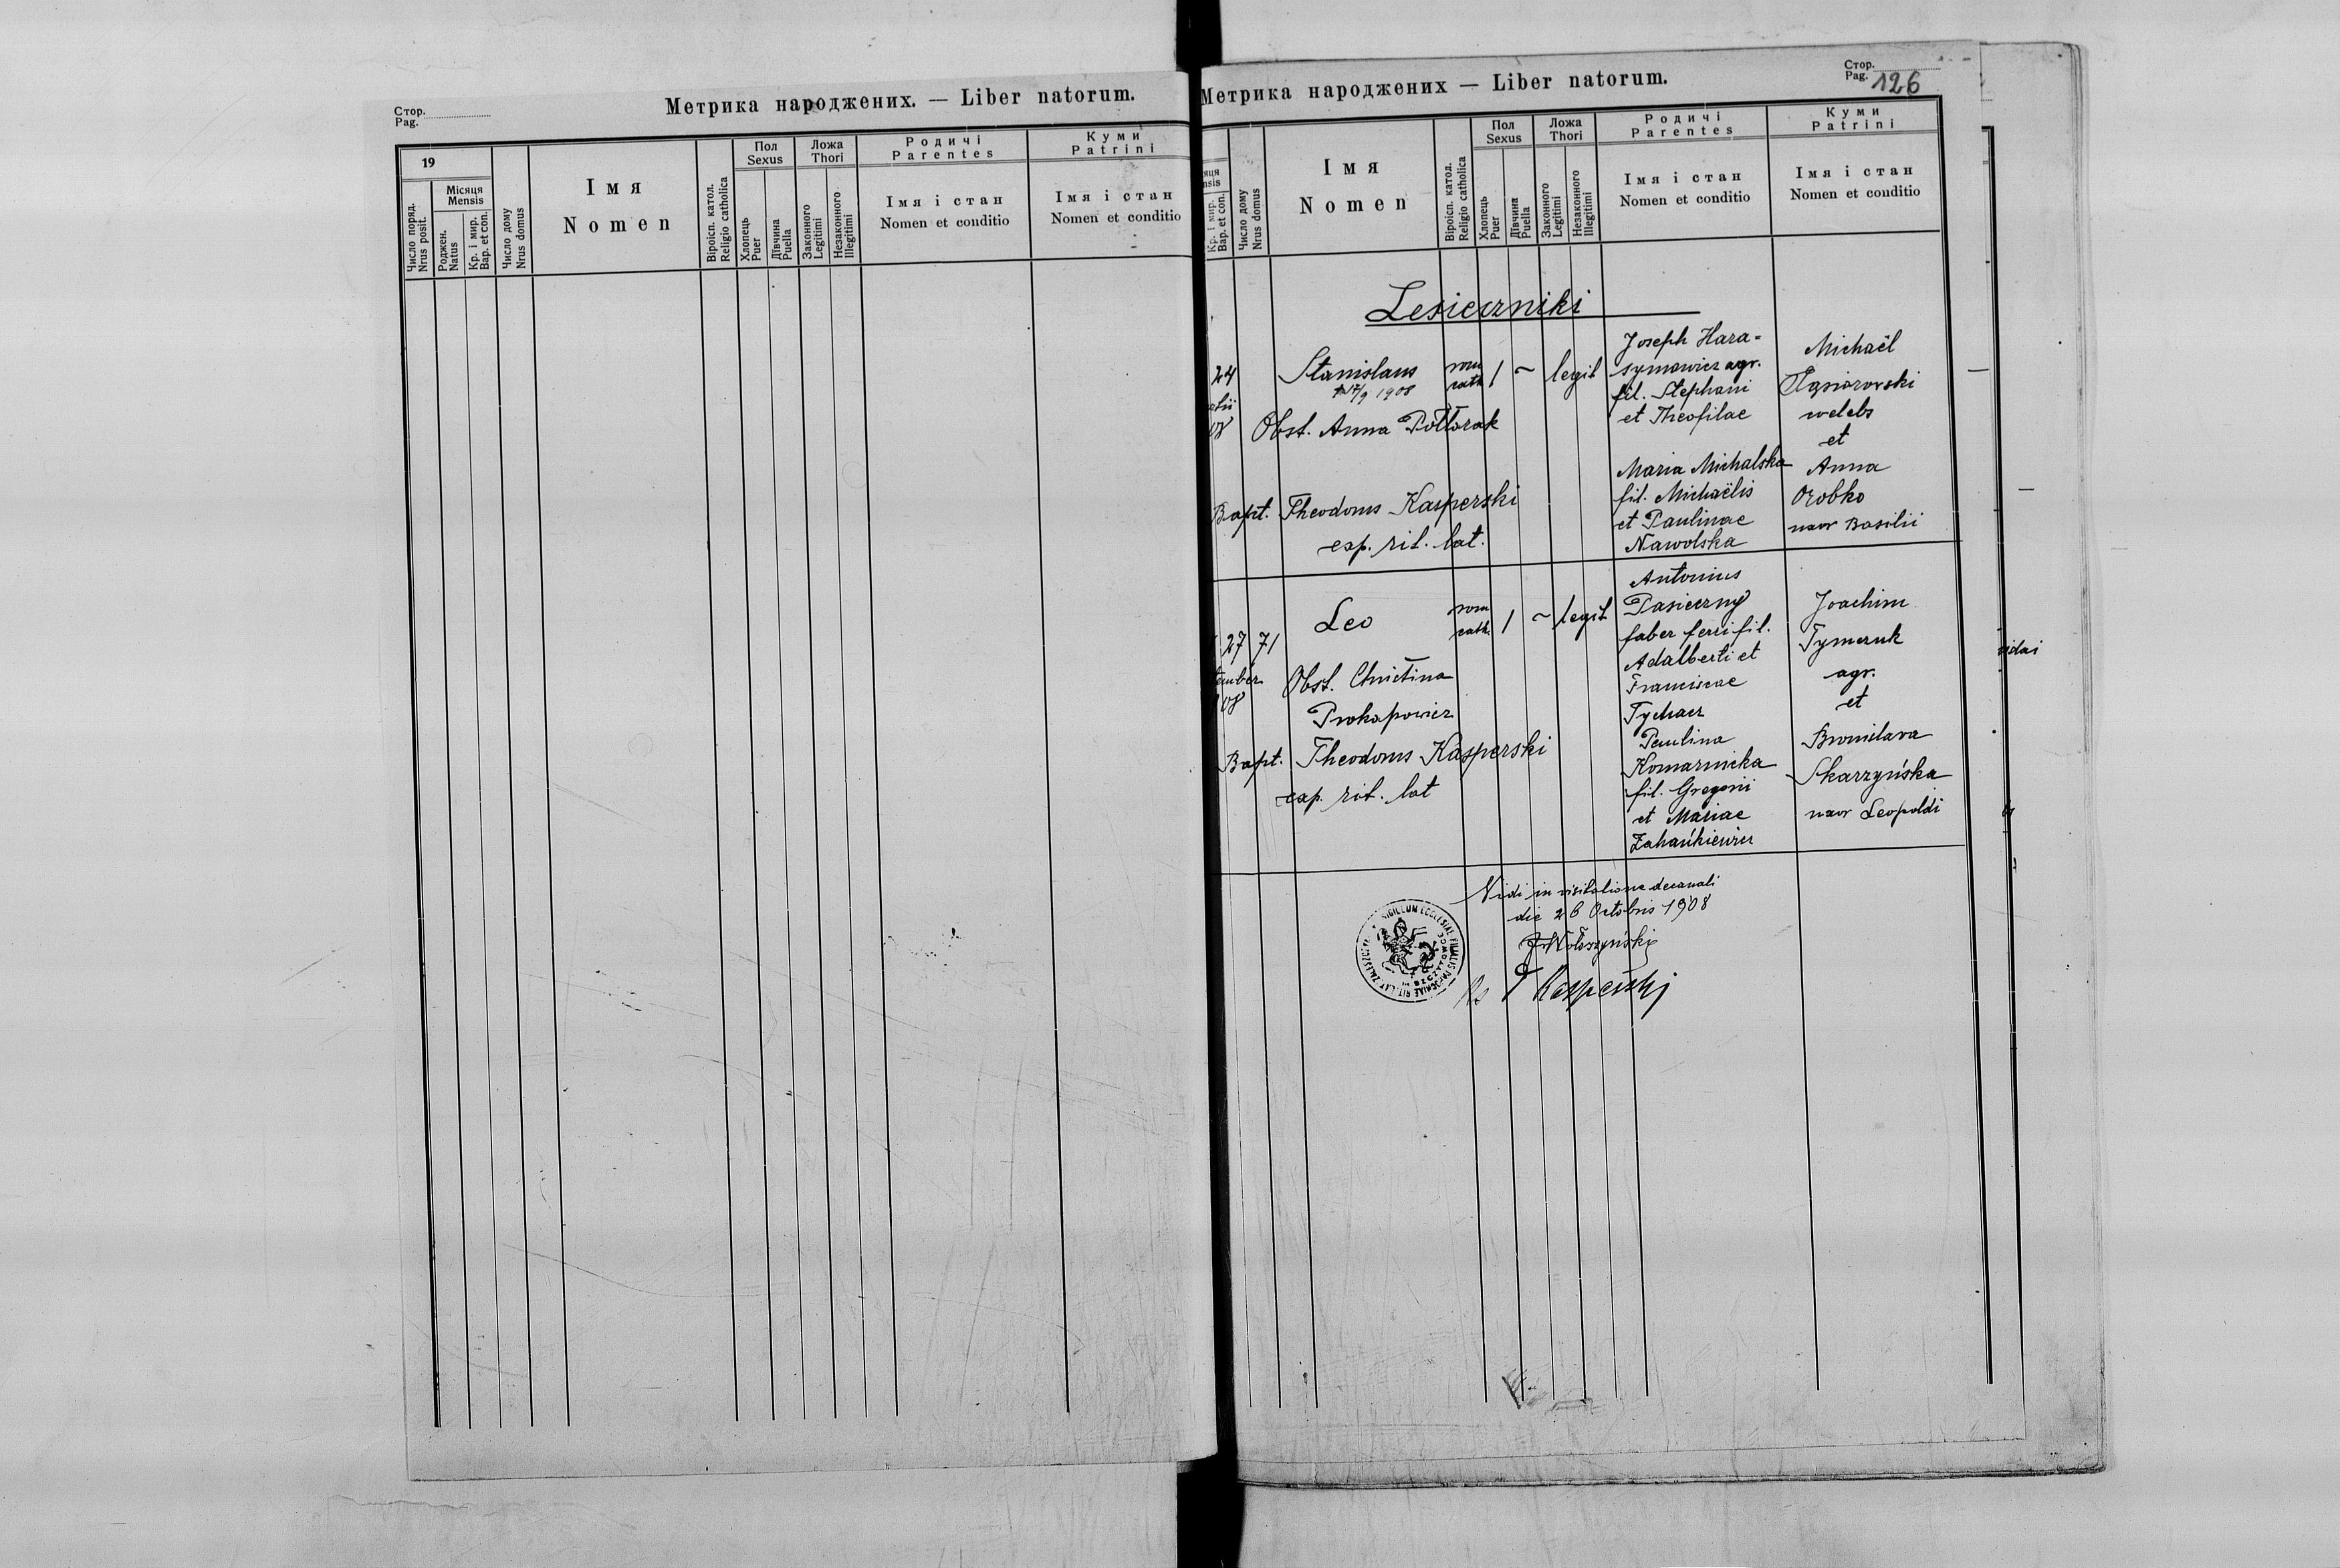 Стор.
Pag.
Метрика народжених. — Liber natorum.
19
Число поряд.
Nrus posit.
Місяця
Mensis
Роджен.
Natus
Кр. і мир.
Bap. et con.
Число дому
Nrus domus
Імя
Nomen
Віроісп. катол.
Religio catholica
Пол
Sexus
Хлопець
Puer
Дівчина
Puella
Ложа
Thori
Законного
Legitimi
Незаконного
Illegitimi
Родичі
Parentes
Імя і стан
Nomen et conditio
Куми
Patrini
Імя і стан
Nomen et conditio
Метрика народжених — Liber natorum.
Стор.
Pag. 126
яця
nsis
Кр. і мир.
Bap. et con.
Число дому
Nrus domus
Імя
Nomen
Віроісп. катол.
Religio catholica
Пол
Sexus
Хлопець
Puer
Дівчина
Puella
Ложа
Thori
Законного
Legitimi
Незаконного
Illegitimi
Родичі
Parentes
Імя і стан
Nomen et conditio
Куми
Patrini
Імя і стан
Nomen et conditio
Lesieczniki
24
08
Stanislaus
17/9 1908
rom
cath
1 ~ legit
Obst. Anna Półtorak
Bapt. Theodorus Kasperski
exp. rit. lat.
Joseph Hara-
symowicz agr.
fil. Stephani
et Theofilae
Maria Michalska
fil. Michaëlis
et Paulinae
Nawolska
Michaël
Gąsiorovski
et
Anna
Orobko
uxor Basilii
27 71
tember
08
Leo
rom
cath.
1 ~ legit
Obst. Christina
Prokopowicz
Bapt. Theodorus Kasperski
exp. rit. lat
Antonius
Pasieczny
faber ferri fil.
Adalberti et
Franciscae
Tychacz
Paulina
Komarnicka
fil. Gregorii
et Mariae
Zahańkiewicz
Joachim
Tymczuk
agr.
et
Bronislava
Skarzyńska
uxor Leopoldi
Vidi in visitatione decanali
die 26 Octobris 1908
J. Wołoszyński
Ks T Kasperski
SIGILLUM ECCLESIAE FILIALIS PAROCHIAE RIT. LAT.